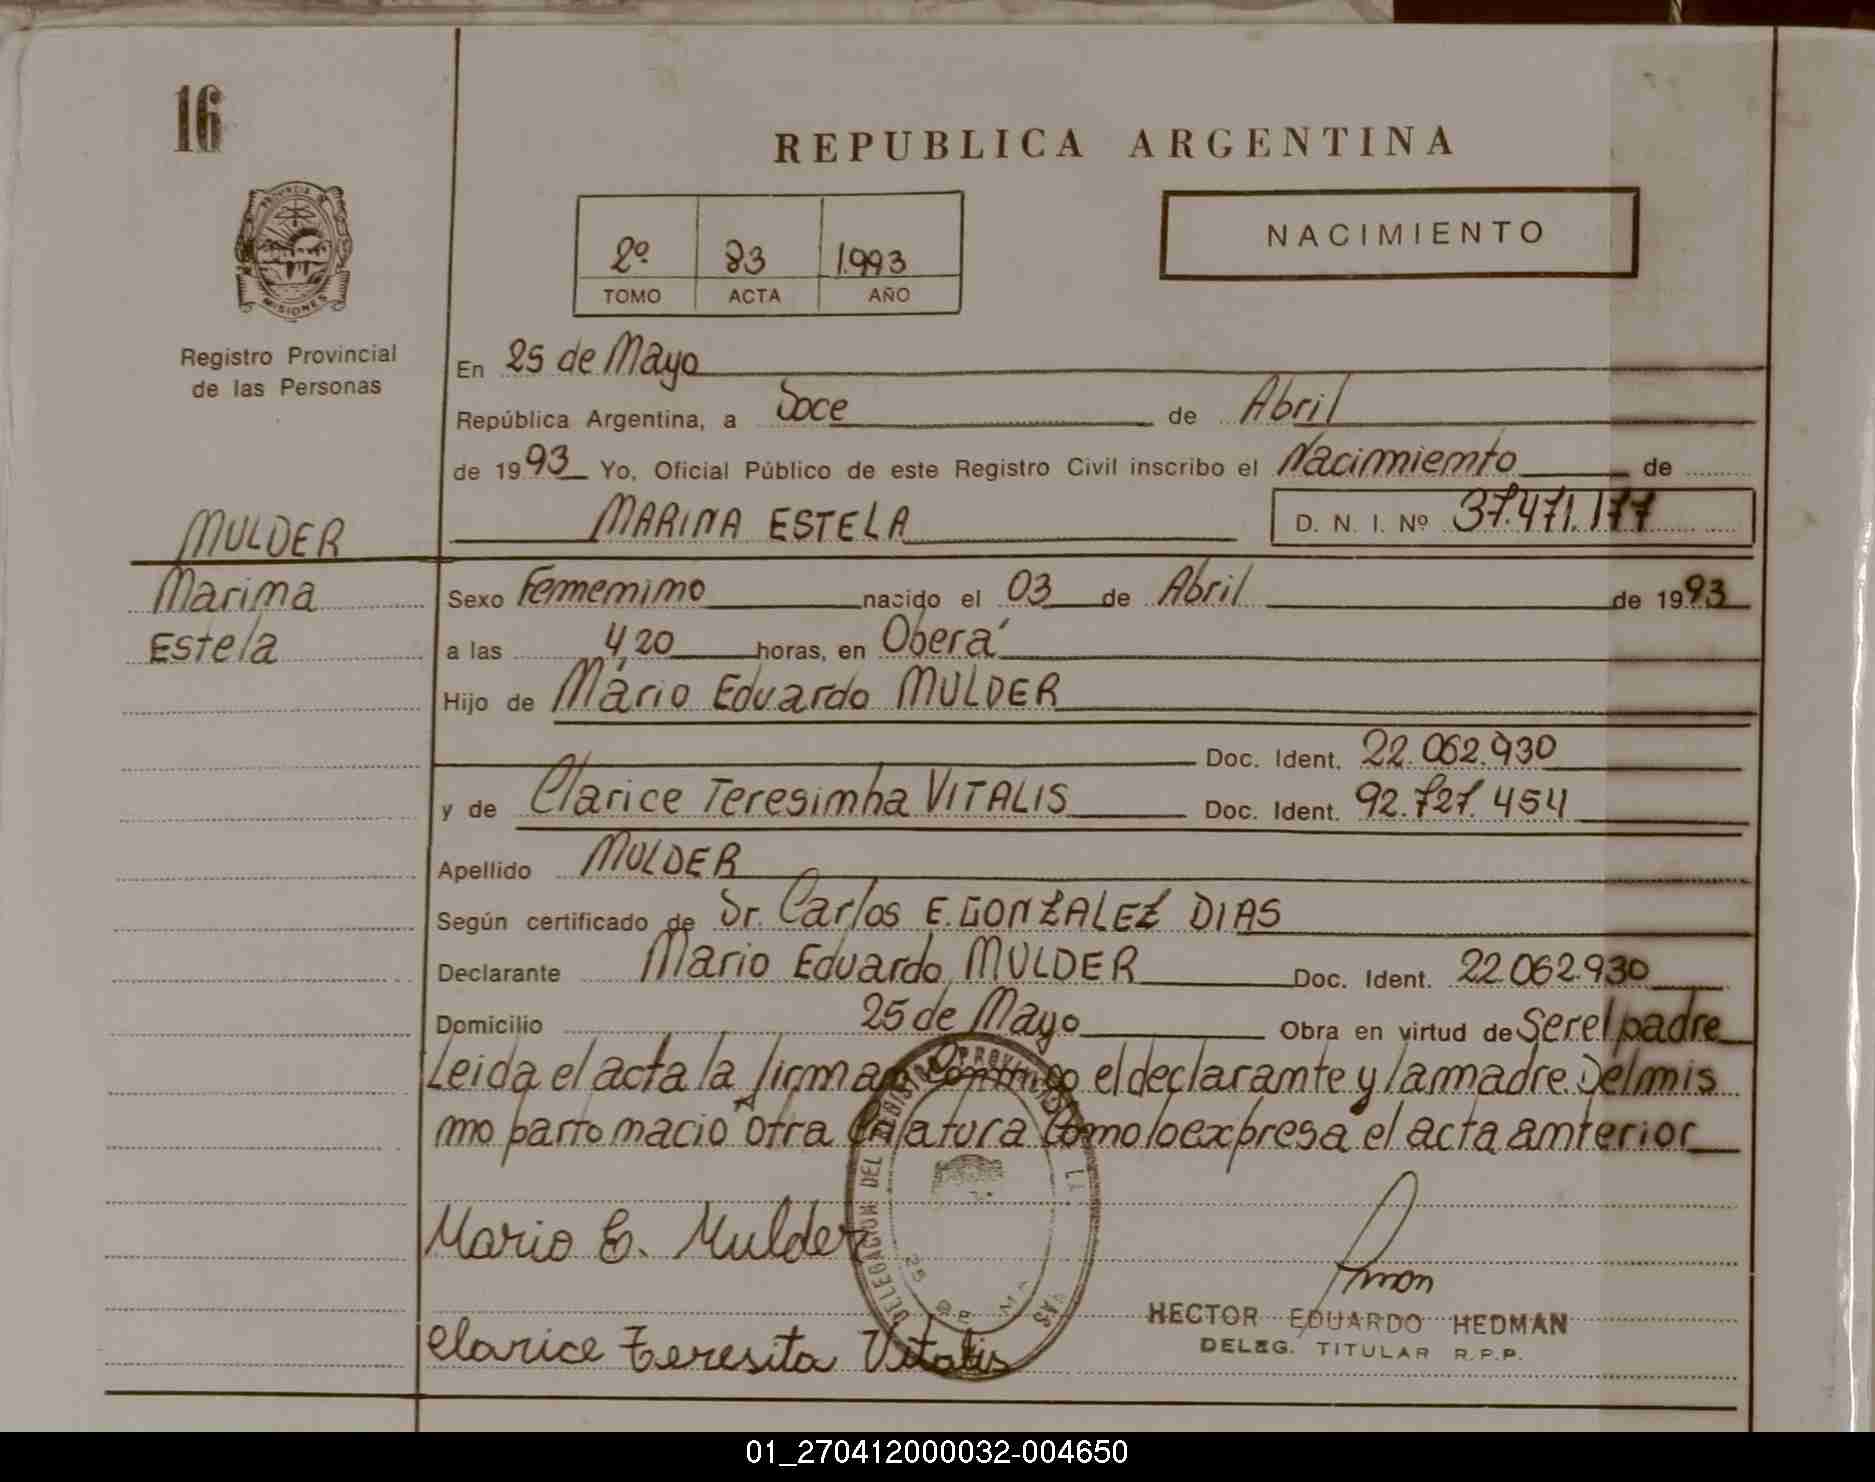 16
REPUBLICA ARGENTINA
PROVINCIA DE
MISIONES
Registro Provincial
de las Personas
2º 83 1.993
TOMO ACTA AÑO
NACIMIENTO
En 25 de Mayo
República Argentina, a Doce de Abril
de 1993 Yo, Oficial Público de este Registro Civil inscribo el Nacimiento de
MULDER
MARINA ESTELA D. N. I. Nº 37.471.177
Marina
Estela
Sexo Femenino nacido el 03 de Abril de 1993
a las 4,20 horas, en Oberá
Hijo de Mario Eduardo MULDER
Doc. Ident. 22.062.930
y de Clarice Teresinha VITALIS Doc. Ident. 92.727.454
Apellido MULDER
Según certificado de Dr. Carlos E. GONZALEZ DIAS
Declarante Mario Eduardo MULDER Doc. Ident. 22.062.930
Domicilio 25 de Mayo Obra en virtud de Ser el padre
Leida el acta la firman Conmigo el declarante y la madre. Del mis
mo parto nació otra Criatura Como lo expresa el acta anterior
Mario E. Mulder
Clarice Teresita Vitalis
HECTOR EDUARDO HEDMAN
DELEG. TITULAR R.P.P.
DELEGACION DEL REGISTRO PROVINCIAL DE LA
01_270412000032-004650